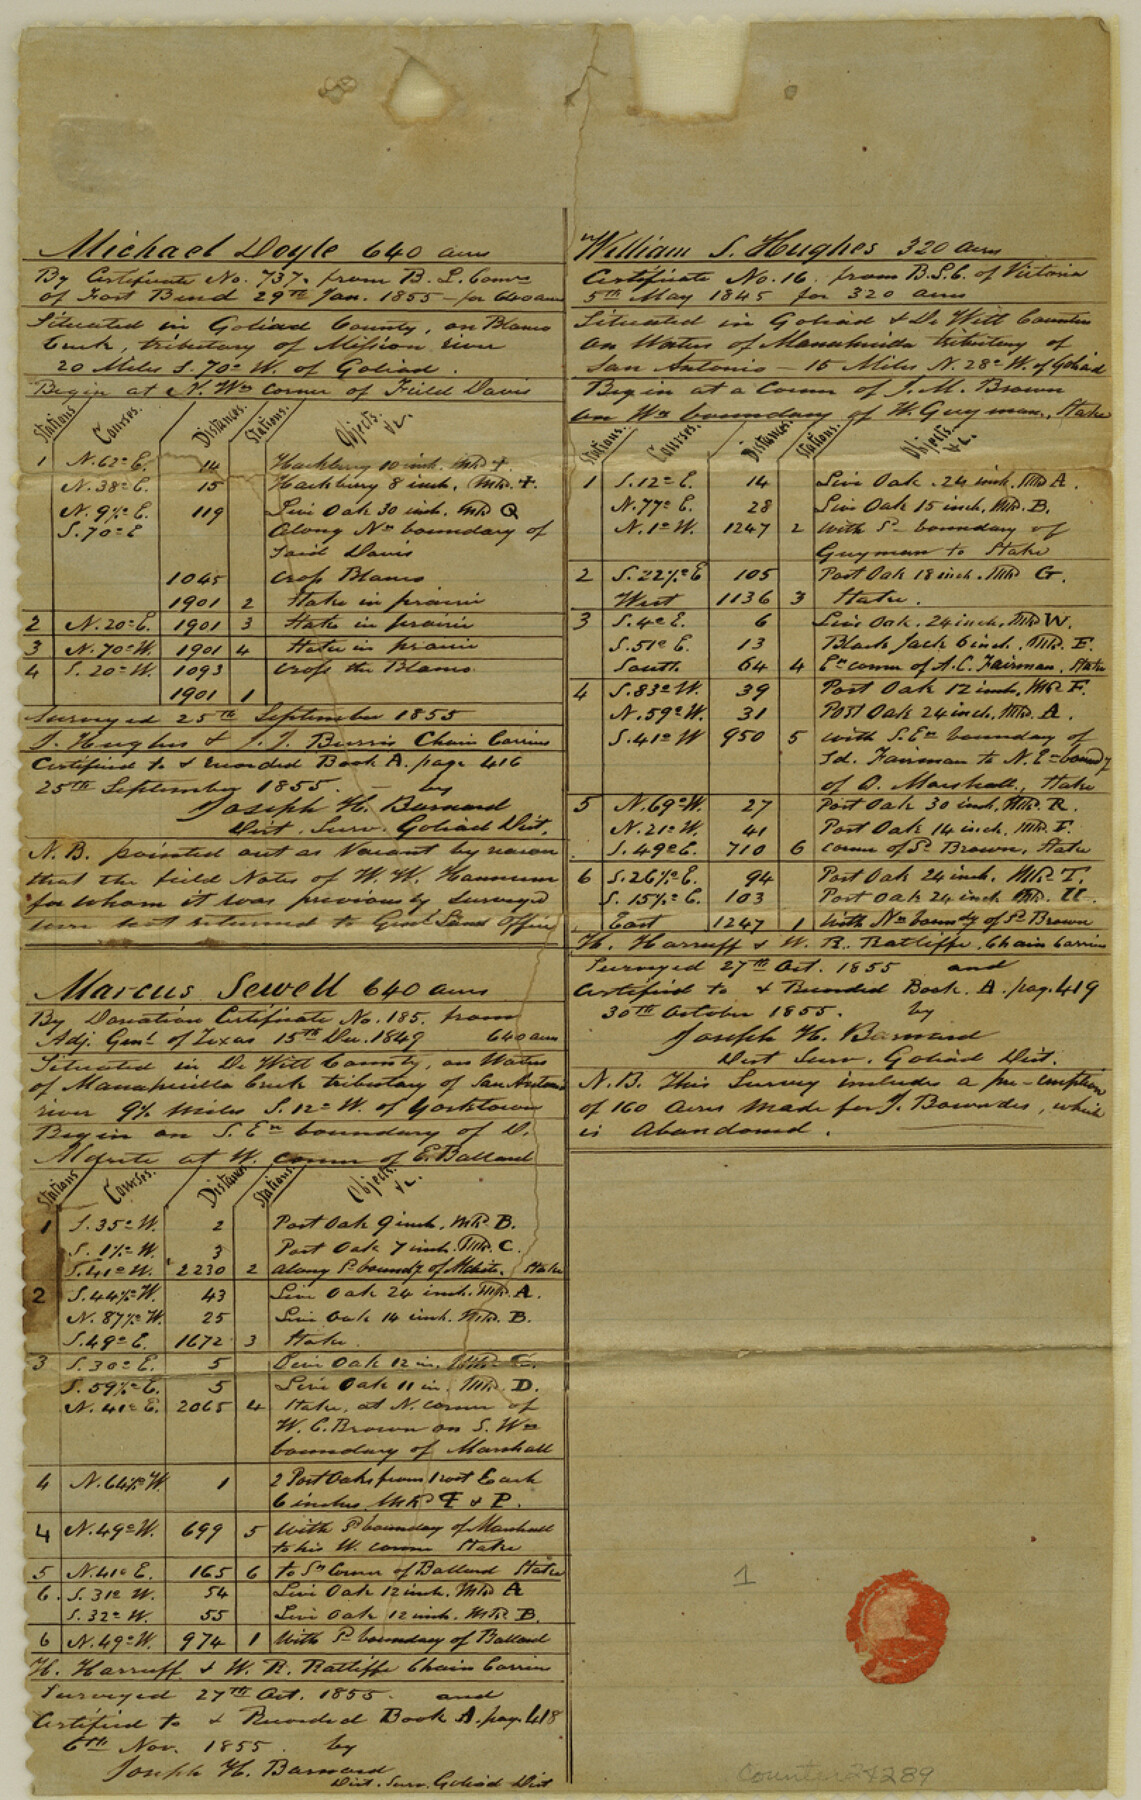 Michael Doyle 640 acres
By Certificate No. 737, from B. L. Comrs
of Fort Bend 29th Jan. 1855 - for 640 acres
Situated in Goliad County, on Blanco
Creek, tributary of Mission river
20 Miles S. 70° W. of Goliad.
Begin at N. Wn corner of Field Davis
Stations Courses. Distances. Stations. Objects. &c.
1 N. 62° E. 14 Hackberry 10 inch. Mkd
N. 38° E. 15 Hackberry 8 inch. Mkd.
N. 9½° E. 119 Live Oak 30 inch. Mkd Q
S. 70° E along Nn boundary of
said Davis
1045 cross Blanco
1901 2 Stake in prairie
2 N. 20° E. 1901 3 Stake in prairie
3 N. 70° W. 1901 4 Stake in prairie
4 S. 20° W. 1093 cross the Blanco
1901 1
Surveyed 25th September 1855
T. Hughes & J. J. Burris Chain Carriers
Certified to & recorded Book A. page 416
25th September 1855. by
Joseph H. Barnard
Dist. Surv. Goliad Dist.
N. B. pointed out as Vacant by reason
that the field Notes of W. W. Hannum
for whom it was previously surveyed
were not returned to Genl Land Office
Marcus Sewell 640 acres
By Donation Certificate No. 185. from
Adj. Genl. of Texas 15th Dec. 1849 640 acres
Situated in De Witt County, on Waters
of Manahuilla Creek tributary of San Antonio
river 9½ Miles S. 12° W. of Yorktown
Begin on S. En boundary of D.
at W. corner of E. Ballard
Stations Courses. Distances Stations Objects. &c.
1 S. 35° W. 2 Post Oak 9 inch. Mkd. B.
S. 1½° W. 3 Post Oak 7 inch. Mkd. C.
S. 41° W. 2230 2 along Sn boundy of Stake
2 S. 44½° W. 43 Live Oak 24 inch. Mkd. A.
N. 87½° W. 25 Live Oak 14 inch. Mkd. B.
S. 49° E. 1672 3 Stake
3 S. 30° E. 5 Live Oak 12 in. Mkd C.
S. 59½° E. 5 Live Oak 11 in. Mkd. D.
N. 41° E. 2065 4 Stake, at N. corner of
W. C. Brown on S. Wn
boundary of Marshall
4 N. 64½° W. 1 2 Post Oaks from 1 root Each
6 inches Mkd F & P.
4 N. 49° W. 699 5 with Sn boundary of Marshall
to his W. corner Stake
5 N. 41° E. 165 6 to Sn Corner of Ballard Stake
6. S. 31° W. 54 Live Oak 12 inch. Mkd A
S. 32° W. 55 Live Oak 12 inch. Mkd. B.
6 N. 49° W. 974 1 With Sn boundary of Ballard
H. Harruff & W. R. Ratliffe Chain Carriers
Surveyed 27th Oct. 1855. and
Certified to & Recorded Book A. page 418
6th Nov. 1855. by
Joseph H. Barnard
Dist. Surv. Goliad Dist
William S. Hughes 320 acres
Certificate No. 16. from B. L. C. of Victoria
5th May 1845 for 320 acres
Situated in Goliad & De Witt Counties
on Waters of Manahuilla tributary of
San Antonio - 15 Miles N. 28° W. of Goliad
Begin at a Corner of J. M. Brown
on Wn boundary of W. Guyman, Stake
Stations. Courses. Distances. Stations. Objects &c.
1 S. 12° E. 14 Live Oak. 24 inch. Mkd A.
N. 77° E. 28 Live Oak 15 inch, Mkd. B.
N. 1° W. 1247 2 with Sn boundary of
Guyman to Stake
2 S. 22½° E 105 Post Oak 18 inch. Mkd G.
West 1136 3 Stake.
3 S. 4° E. 6 Live Oak. 24 inch. Mkd W.
S. 51° E. 13 Black Jack 6 inch. Mkd. E.
South 64 4 En corner of A. C. Fairman. Stake
4 S. 83° W. 39 Post Oak 12 inch, Mkd. F.
N. 59° W. 31 Post Oak 24 inch. Mkd. A.
S. 41° W 950 5 with S. En boundary of
Sd. Fairman to N. En boundy
of O. Marshall, Stake
5 N. 69° W. 27 Post Oak 30 inch, Mkd. R.
N. 21° W. 41 Post Oak 14 inch. Mkd. F.
S. 49° E. 710 6 corner of Sd Brown, Stake
6 S. 26½° E. 94 Post Oak 24 inch. Mkd. T.
S. 15½° E. 103 Post Oak 24 inch Mkd. U.
East 1247 1 With Nn boundy of Sd Brown
H. Harruff & W. R. Ratliffe, Chain Carriers
Surveyed 27th Oct. 1855 and
Certified to & Recorded Book. A. page 419
30th October 1855. by
Joseph H. Barnard
Dist Surv. Goliad Dist.
N. B. This Survey includes a pre-emption
of 160 Acres made for J. Bowndes, which
is Abandoned.
1
Counter 24289